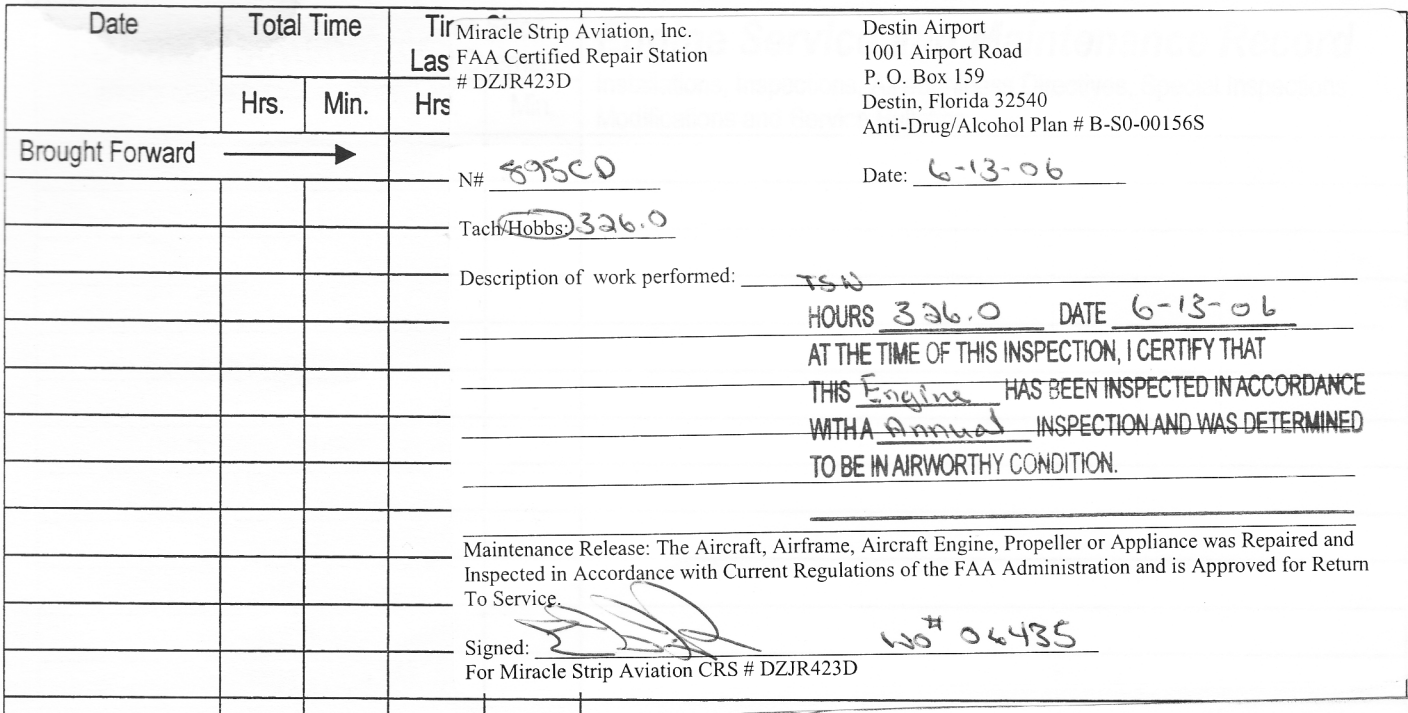 Date
Total Time
Hrs. Min.
Las
Hrs
Brought Forward
Miracle Strip Aviation, Inc.
FAA Certified Repair Station
# DZJR423D
Destin Airport
1001 Airport Road
P. O. Box 159
Destin, Florida 32540
Anti-Drug/Alcohol Plan # B-S0-00156S
N# 895CD
Date: 6-13-06
Tach/Hobbs: 326.0
Description of work performed: TSN
HOURS 326.0 DATE 6-13-06
AT THE TIME OF THIS INSPECTION, I CERTIFY THAT
THIS Engine HAS BEEN INSPECTED IN ACCORDANCE
WITH A Annual INSPECTION AND WAS DETERMINED
TO BE IN AIRWORTHY CONDITION.
Maintenance Release: The Aircraft, Airframe, Aircraft Engine, Propeller or Appliance was Repaired and
Inspected in Accordance with Current Regulations of the FAA Administration and is Approved for Return
To Service.
Signed: WO# 06435
For Miracle Strip Aviation CRS # DZJR423D